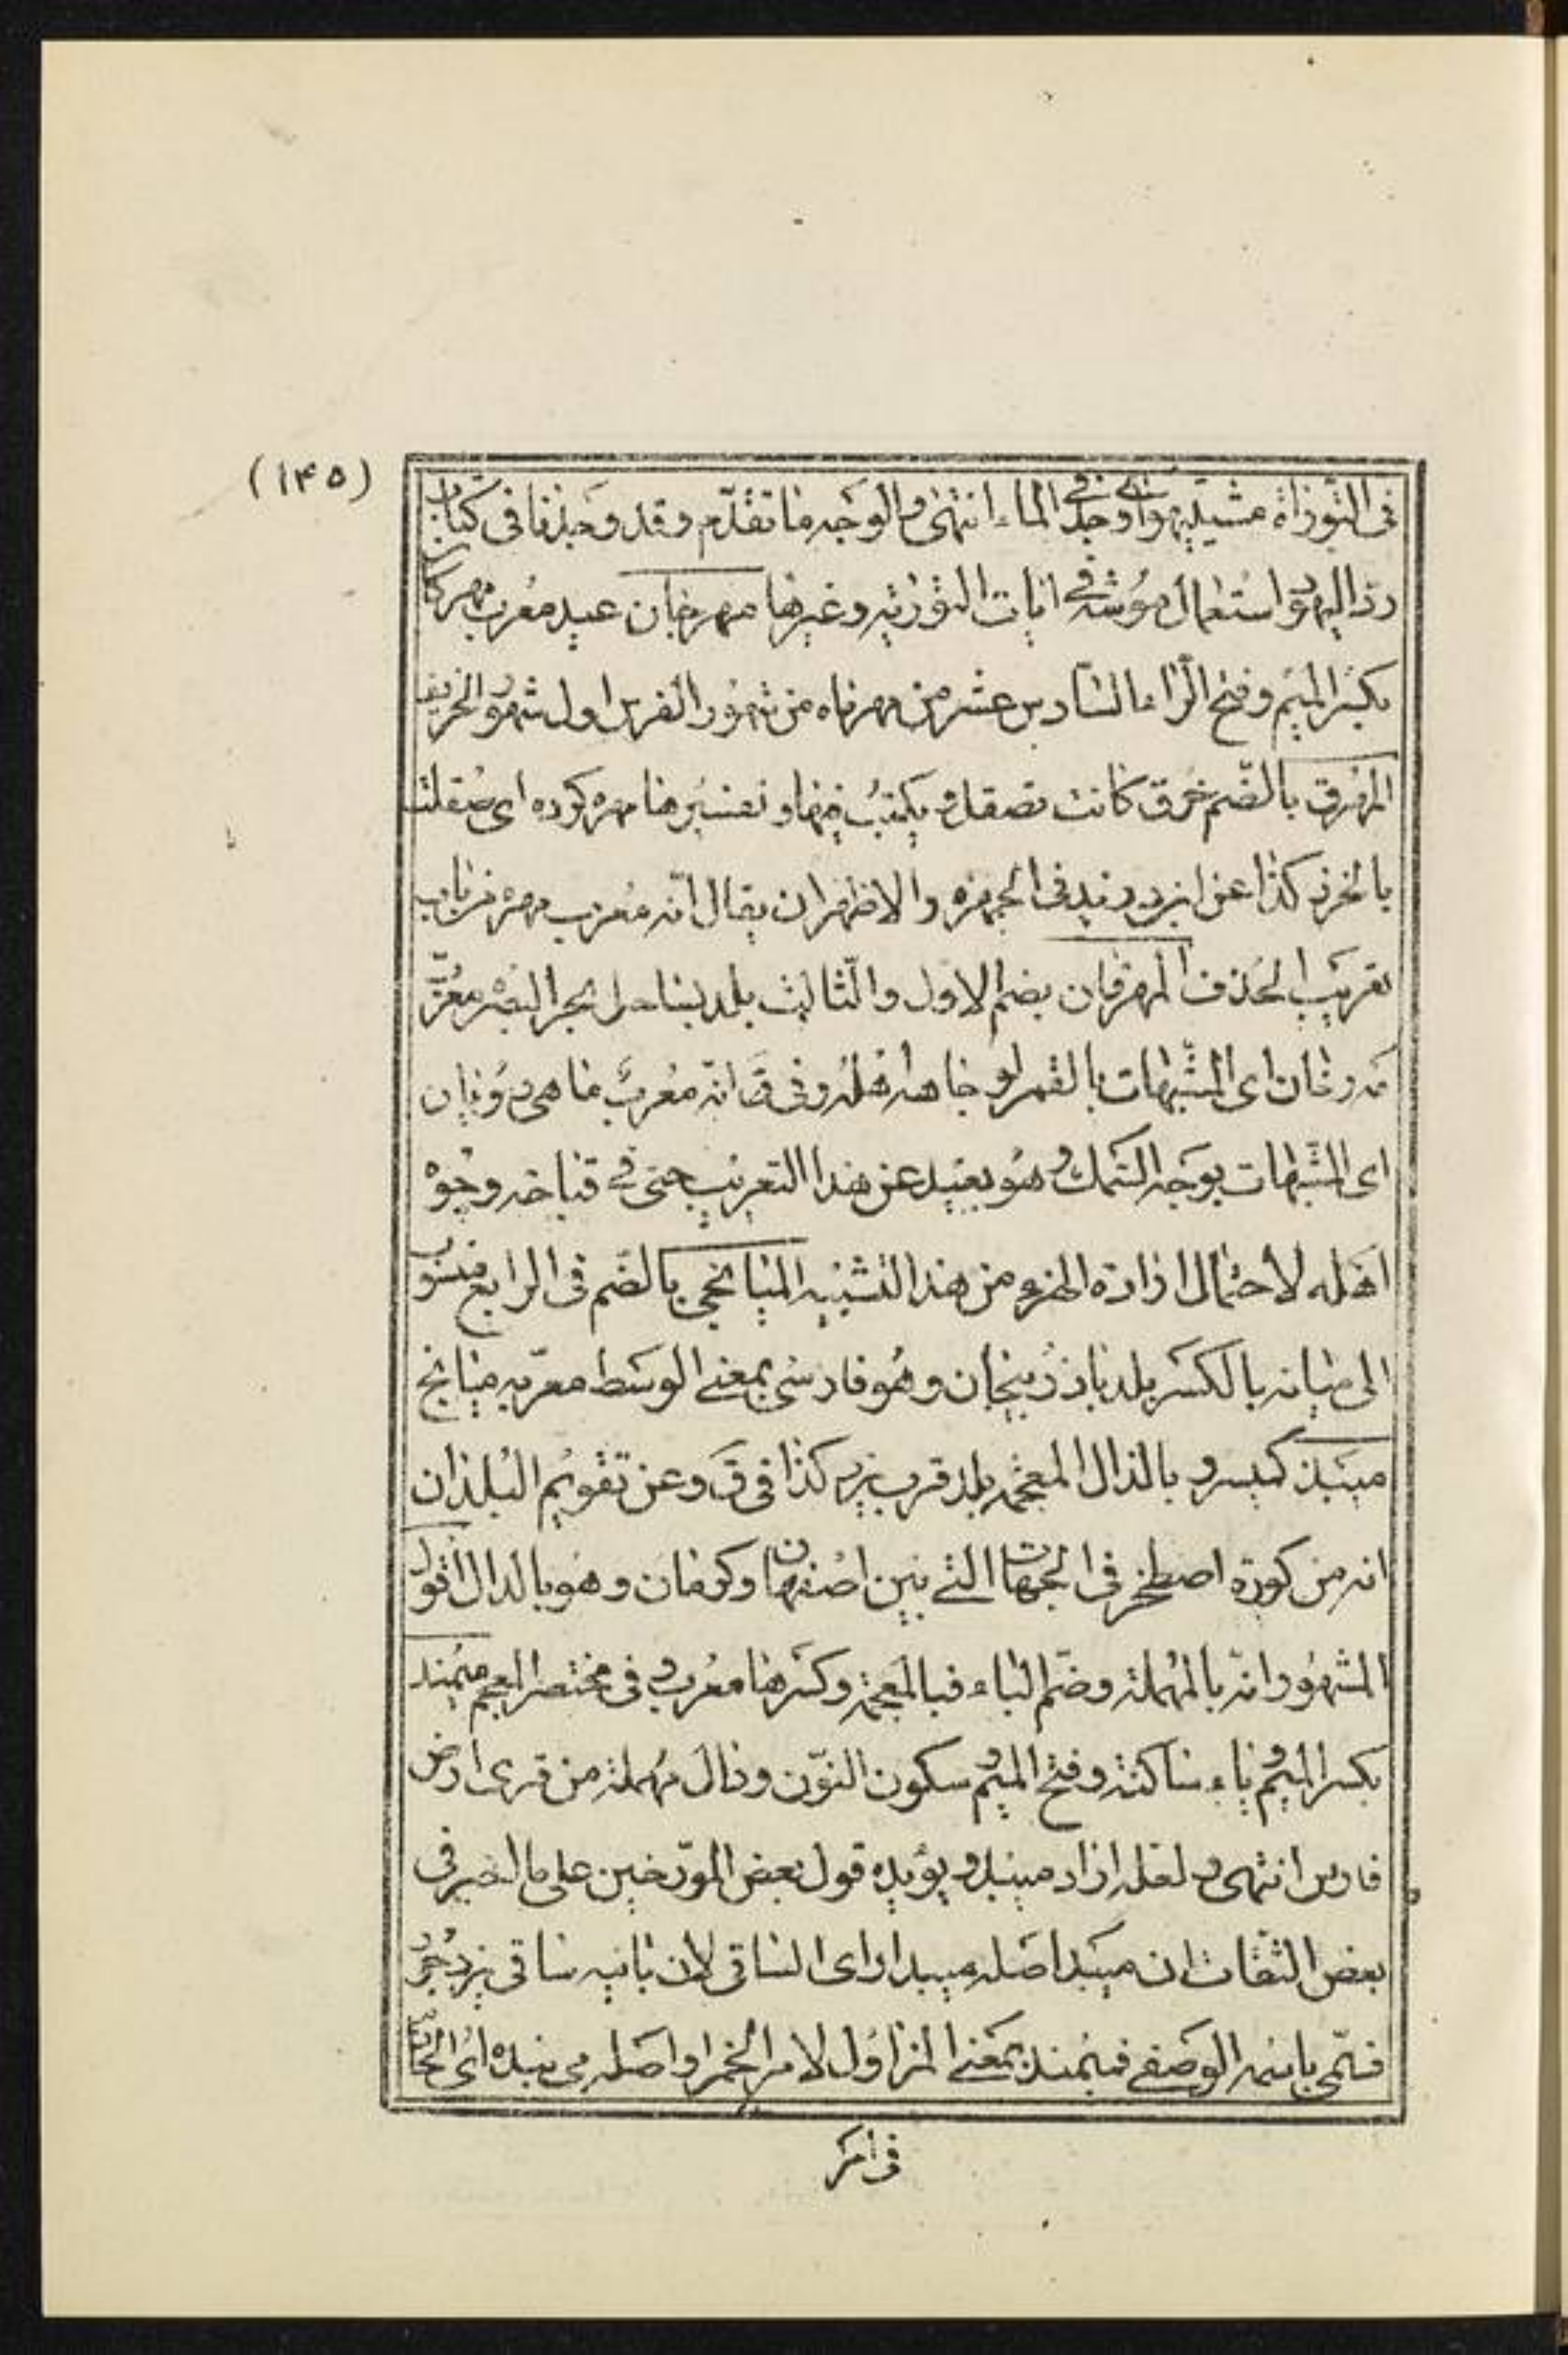 (۱۴۵)
فى التوراة مشيتيهو اى وجد فى الماء انتهى و الوجه ما تقدّم و قد وجدنا فى كتاب
ردّ اليهود استعمال موشه فى ايات التورية و غيرها مهرجان عيد معرب مهركان
بكسر الميم وفتح الراء السادس عشر من مهرماه من شهور الفرس اول شهور الخريف
المهرق بالضّم خرق كانت تصقل و يكتب فيها و تفسيرها مهره كرده اى صقلت
بالخرز كذا عن ابن دريد فى الجمهرة والاظهر ان يقال انّه معرب مهره من باب
تعريب الحذف المهرقان بضم الاول والثالث بلد بساحل بحر البصره معرّب
مه رخان اى المشبّهات بالقمر لوجاهة اهله و فى ق انّه معرب ماهى رويان
اى المشبّهات بوجه السّمك و هو بعيد عن هذا التعريب حتى فى قباحة وجوه
اهله لاحتمال ارادة الهزء من هذا التشبيه الميانجى بالضّم فى الرابع منسوب
الى ميانه بالكسر بلد باذربيجان و هو فارسى بمعنى الوسط معرّبه ميانج
ميبذ كميسر و بالذال المعجمة بلد قرب يزد كذا فى ق و عن تقويم البلدان
انه من كورة اصطخر فى الجهات التى بين اصفهان و كرمان و هو بالدال اقول
المشهور انّه بالمهملة و ضمّ الباء فبالمعجمة و كسرها معرب و فى مختصر المعجم ميمند
بكسر الميم و ياء ساكنة و فتح الميم و سكون النّون و دال مهملة من قرى ارض
فارس انتهى و لعله اراد ميبد و يؤيده قول بعض المورّخين على ما اخبرنى
بعض الثقات ان ميبد اصله ميبد اراى الساقى لان بانيه ساقى يزدجرد
فسمّى باسمه الوصفى فميمند بمعنى المزاول لامر الخمر او اصله مى بنده اى
فى امر